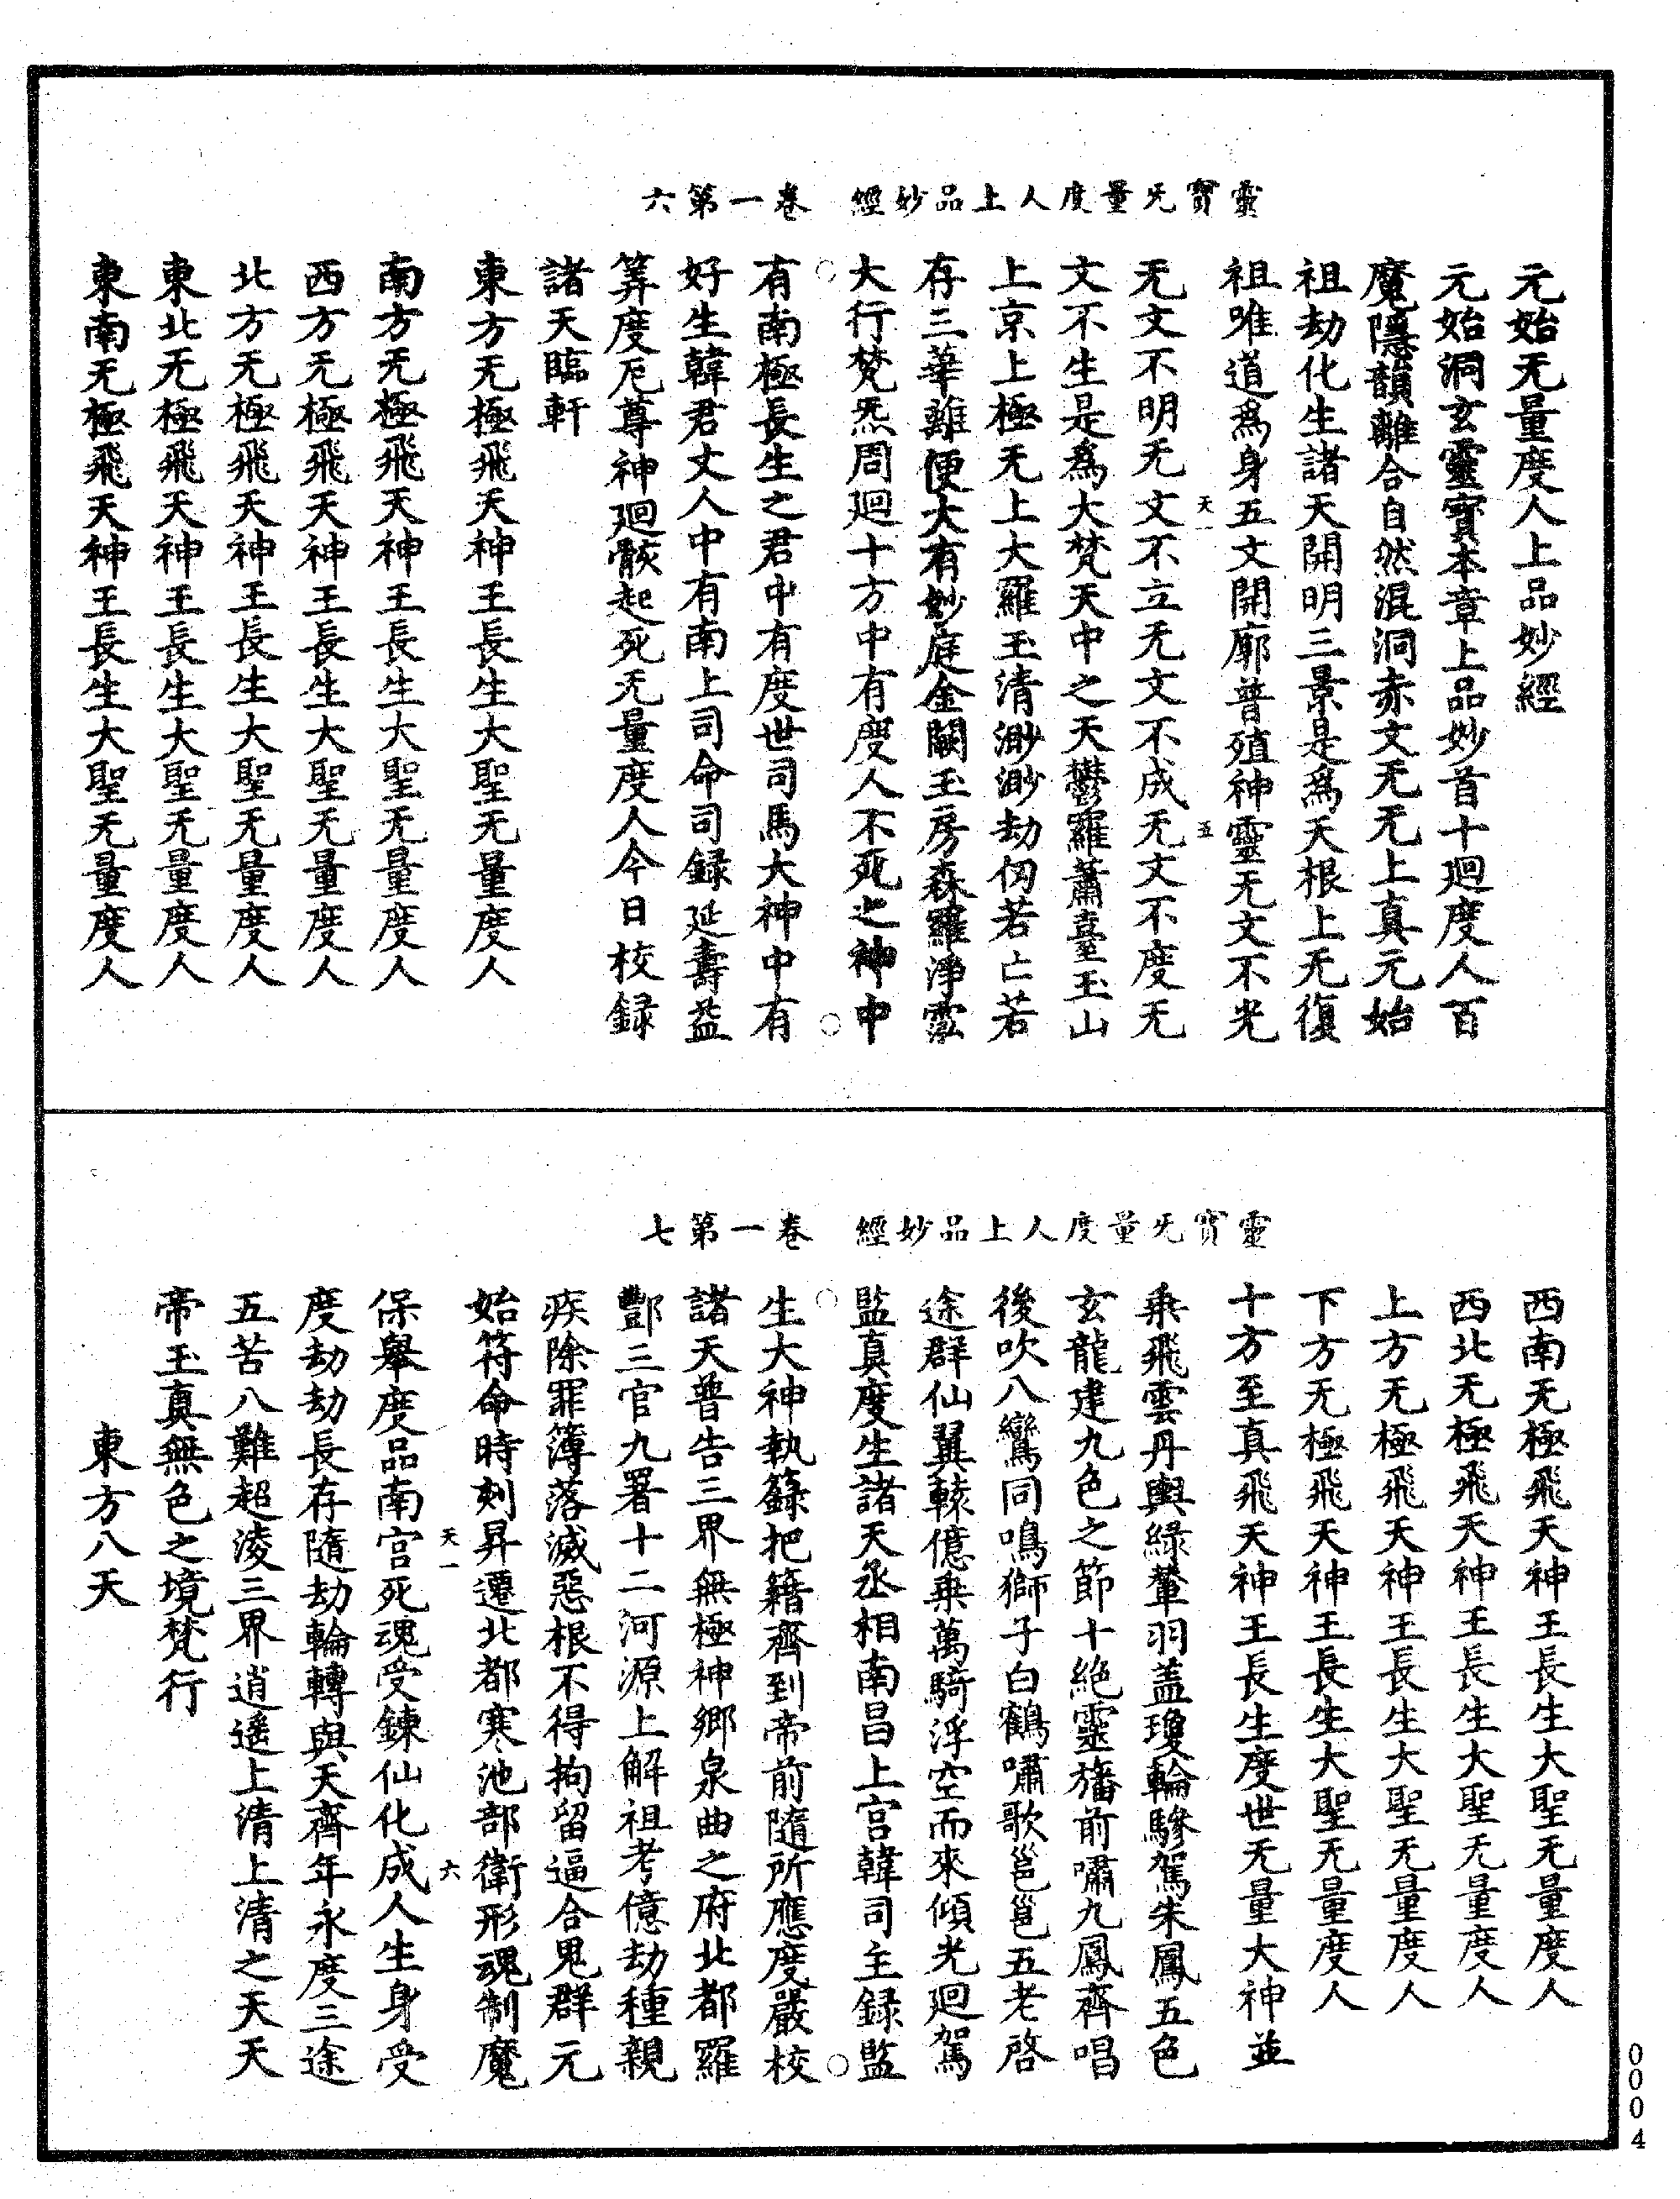 靈寶旡量度人上品妙經　卷一第六
元始无量度人上品妙經
元始洞玄靈寶本章上品妙首十廻度人百
魔隱韻離合自然混洞赤文无无上真元始
祖劫化生諸天開明三景是爲天根上无復
祖唯道爲身五文開廓普殖神靈无文不光
天一　五
无文不明无文不立无文不成无文不度无
文不生是爲大梵天中之天鬱羅蕭臺玉山
上京上極无上大羅玉清渺渺劫仞若亡若
存三華離便大有妙庭金闕玉房森羅淨泓
大行梵炁周廻十方中有度人不死之神中
有南極長生之君中有度世司馬大神中有
好生韓君丈人中有南上司命司録延壽益
筭度厄尊神廻骸起死无量度人今日校録
諸天臨軒
東方无極飛天神王長生大聖无量度人
南方无極飛天神王長生大聖无量度人
西方无極飛天神王長生大聖无量度人
北方无極飛天神王長生大聖无量度人
東北无極飛天神王長生大聖无量度人
東南无極飛天神王長生大聖无量度人
靈寶旡量度人上品妙經　卷一第七
西南无極飛天神王長生大聖无量度人
西北无極飛天神王長生大聖无量度人
上方无極飛天神王長生大聖无量度人
下方无極飛天神王長生大聖无量度人
十方至真飛天神王長生度世无量大神並
乘飛雲丹輿緑輦羽盖瓊輪驂駕朱鳳五色
玄龍建九色之節十絶靈旛前嘯九鳳齊唱
後吹八鸞同鳴獅子白鶴嘯歌邕邕五老啓
途群仙翼轅億乘萬騎浮空而來傾光廻駕
監真度生諸天丞相南昌上宫韓司主録監
生大神執籙把籍齊到帝前隨所應度嚴校
諸天普告三界無極神鄉泉曲之府北都羅
酆三官九署十二河源上解祖考億劫種親
疾除罪簿落滅惡根不得拘留逼合鬼群元
始符命時刻昇遷北都寒池部衛形魂制魔
天一　六
保舉度品南宫死魂受鍊仙化成人生身受
度劫劫長存隨劫輪轉與天齊年永度三途
五苦八難超淩三界逍遥上清上清之天天
帝玉真無色之境梵行
東方八天
0004